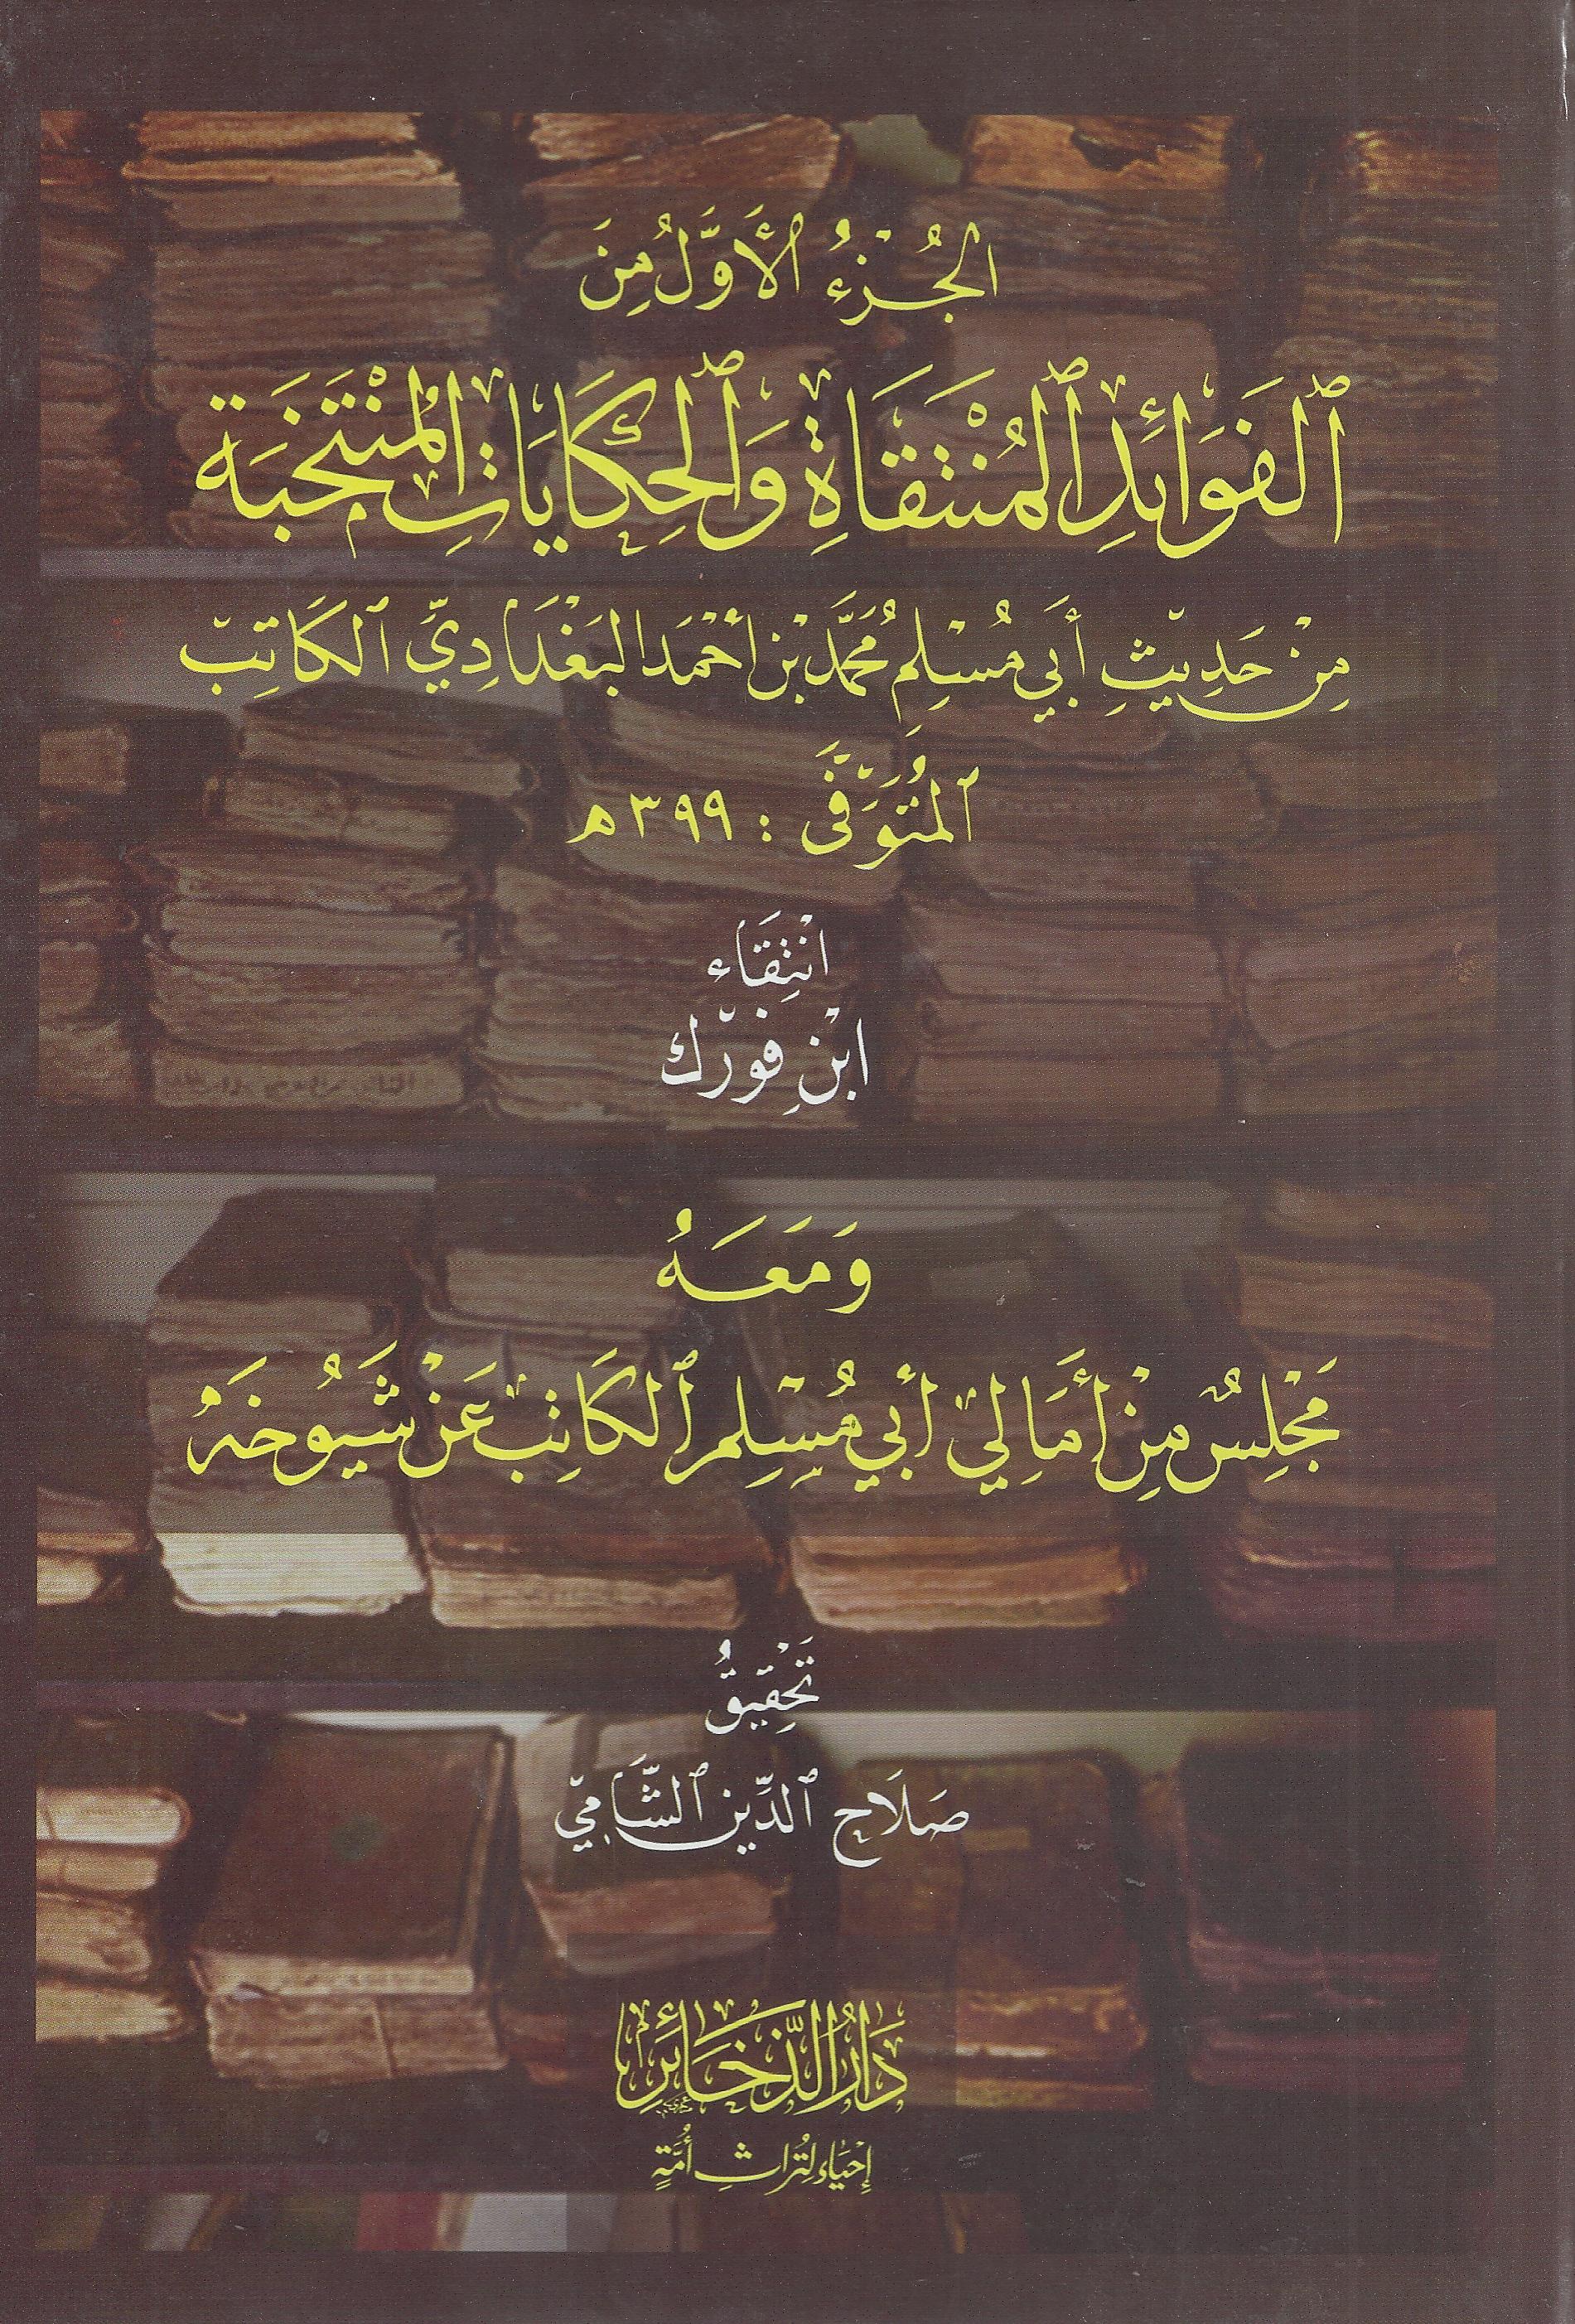 الجُزْءُ الأَوَّلُ مِنَ
ٱلفَوَائِدِ ٱلمُنْتَقَاةِ وَٱلحِكَايَاتِ المُنْتَخَبَة
مِنْ حَدِيثِ أَبِي مُسْلِمٍ مُحَمَّدِ بْنِ أَحْمَدَ البَغْدَادِيِّ ٱلكَاتِبِ
ٱلمُتَوَفَّى : ٣٩٩ه
انْتِقَاء
ابْنِ فُورَك
وَمَعَهُ
مَجْلِسٌ مِنْ أَمَالِي أَبِي مُسْلِمٍ ٱلكَاتِبِ عَنْ شُيُوخِهِ
تَحْقِيقُ
صَلَاح ٱلدِّين ٱلشَّامِيّ
دَارُ الذَّخَائِرِ
إِحْيَاء لِتُرَاثِ أُمَّةٍ